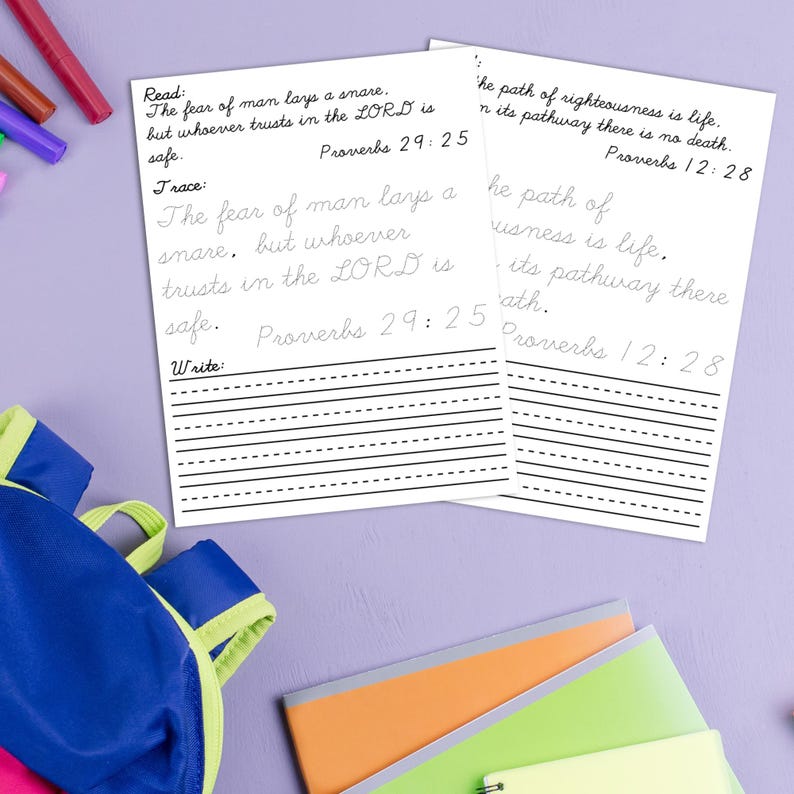 Read:
The fear of man lays a snare,
but whoever trusts in the LORD is
safe.
Proverbs 29:25
Trace:
The fear of man lays a
snare, but whoever
trusts in the LORD is
safe.
Proverbs 29:25
Write:
the path of righteousness is life,
its pathway there is no death.
Proverbs 12:28
the path of
is life,
its pathway there
Proverbs 12:28